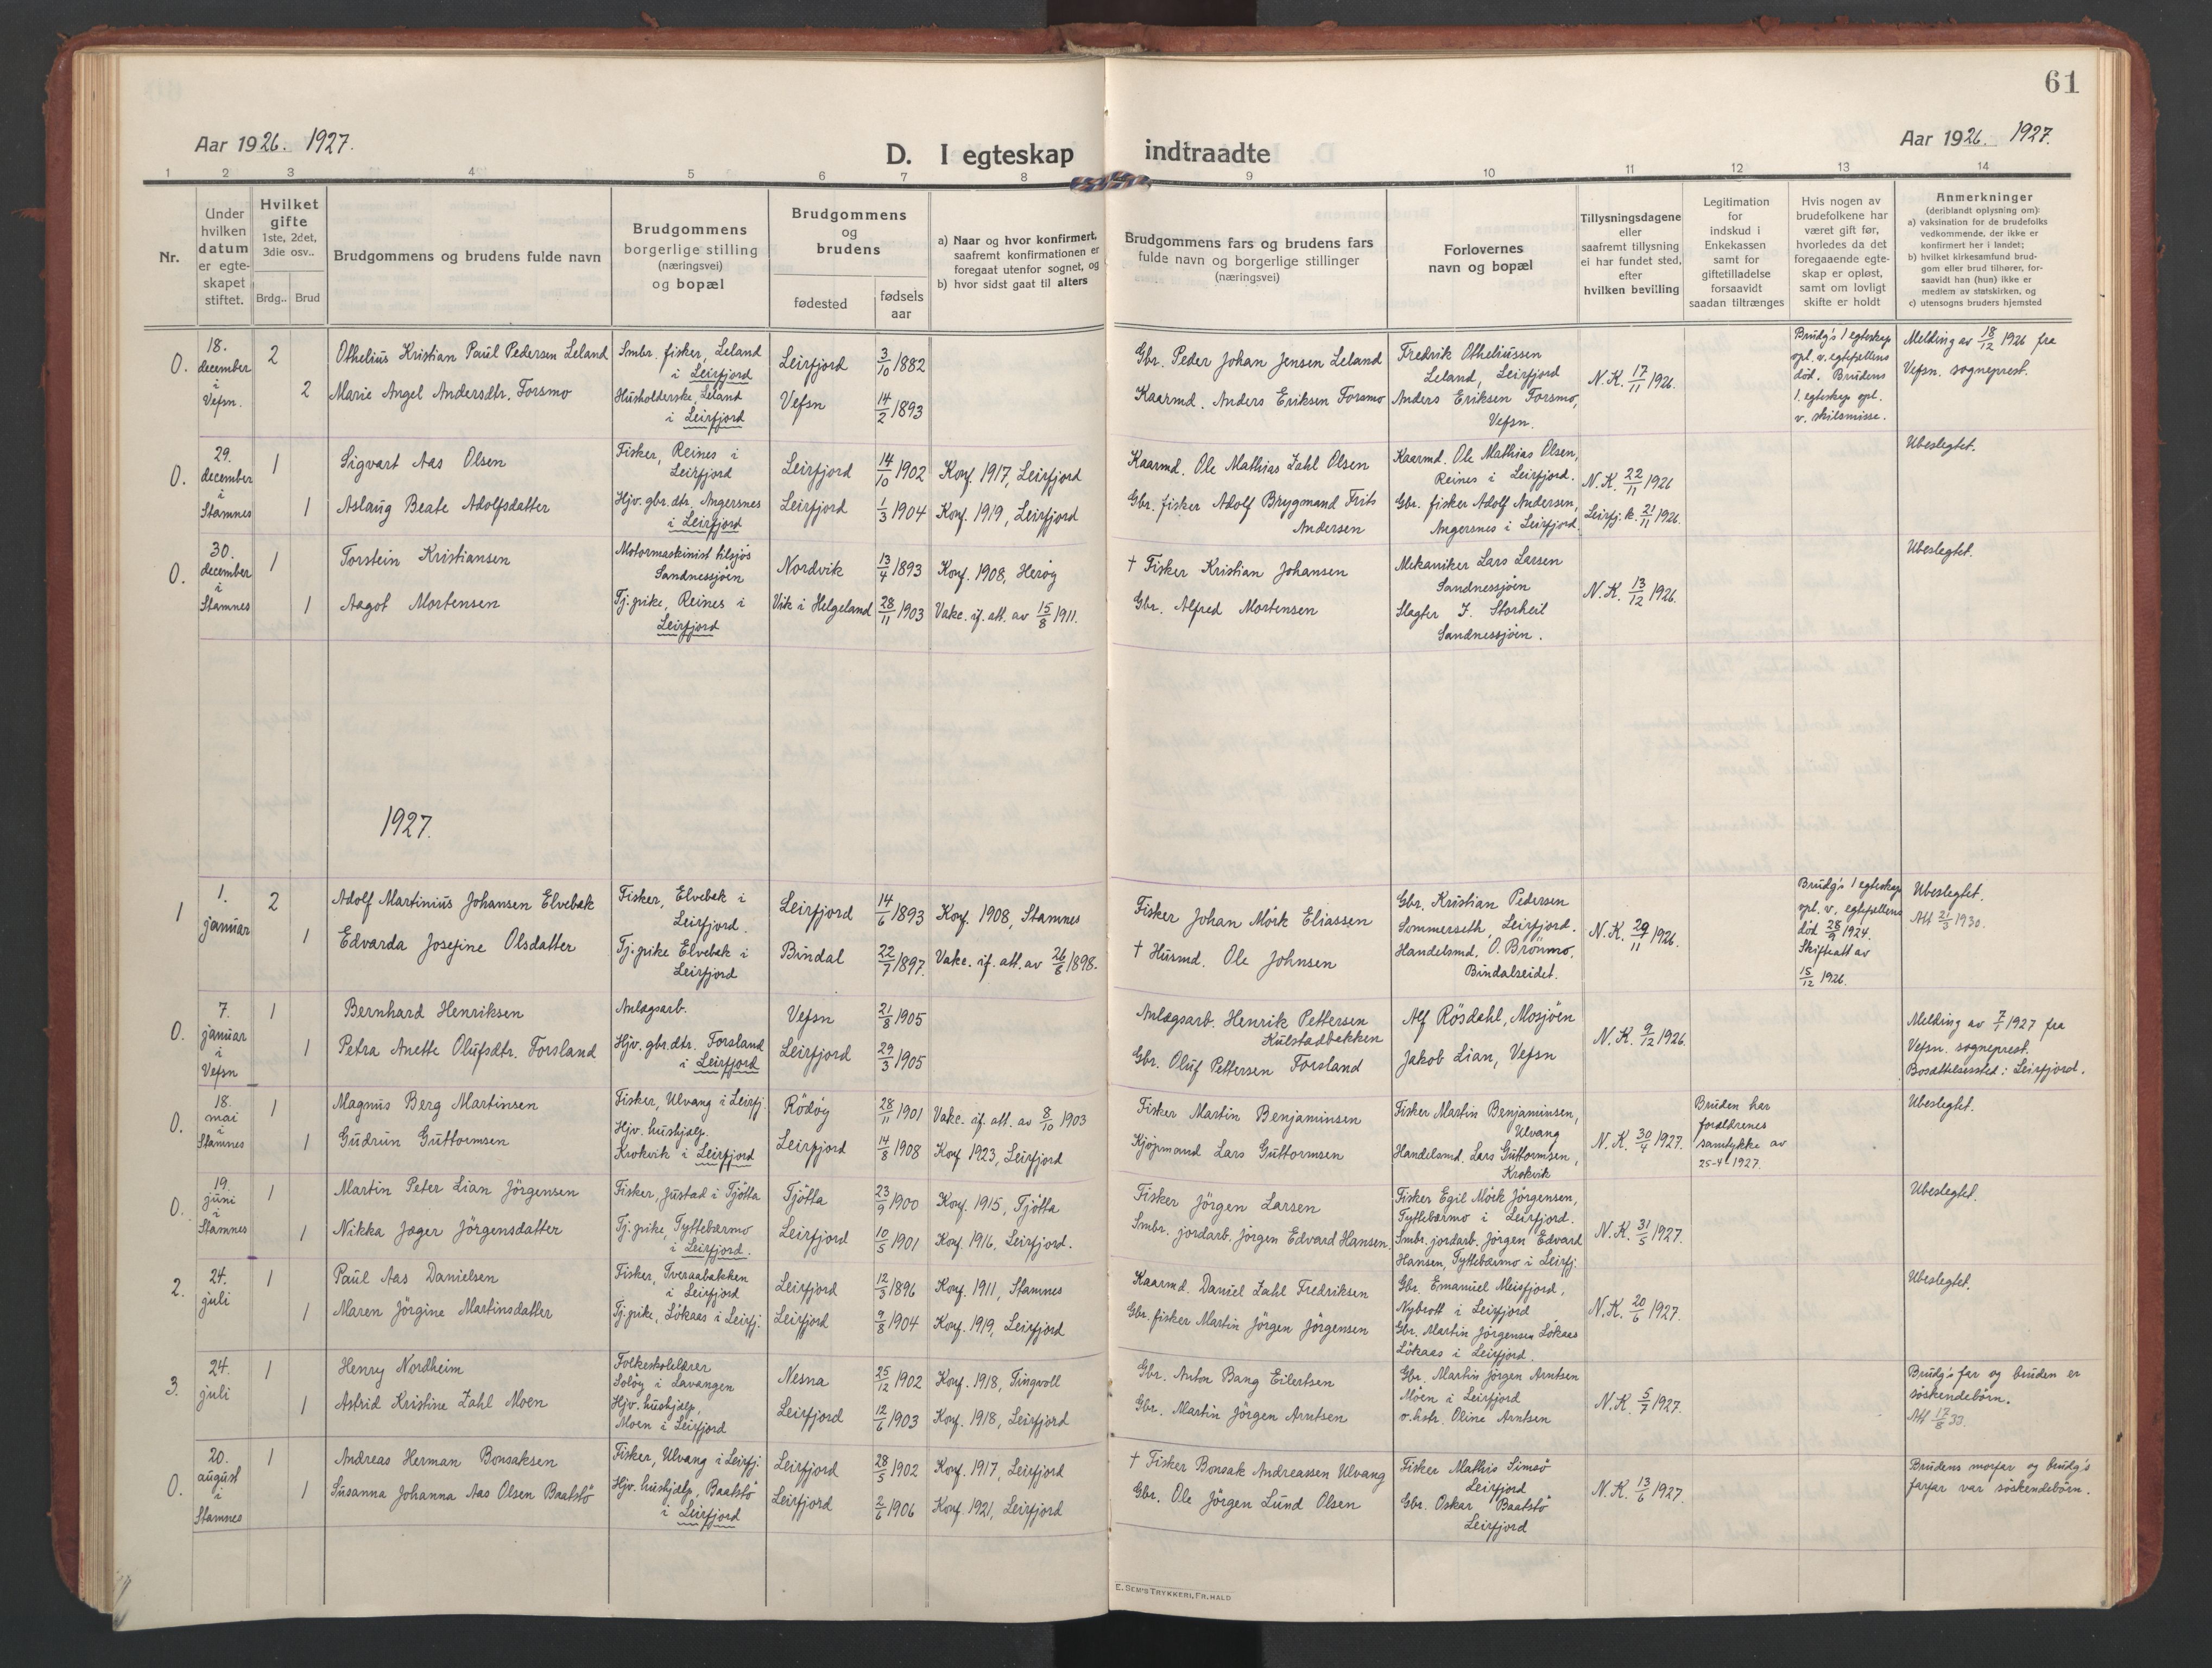 61
Aar 1926. 1927.
D. I egteskap indtraadte
Aar 1926. 1927.
1 2 3 4 5 6 7 8 9 10 11 12 13 14
Nr.
Under
hvilken
datum
er egte-
skapet
stiftet.
Hvilket
gifte
1ste, 2det,
3die osv..
Brdg.. Brud
Brudgommens og brudens fulde navn
Brudgommens
borgerlige stilling
(næringsvei)
og bopæl
Brudgommens
og
brudens
fødested
fødsels
aar
a) Naar og hvor konfirmert,
saafremt konfirmationen er
foregaat utenfor sognet, og
b) hvor sidst gaat til alters
Brudgommens fars og brudens fars
fulde navn og borgerlige stillinger
(næringsvei)
Forlovernes
navn og bopæl
Tillysningsdagene
eller
saafremt tillysning
ei har fundet sted,
efter
hvilken bevilling
Legitimation
for
indskud i
Enkekassen
samt for
giftetilladelse
forsaavidt
saadan tiltrænges
Hvis nogen av
brudefolkene har
været gift før,
hvorledes da det
foregaaende egte-
skap er opløst,
samt om lovligt
skifte er holdt
Anmerkninger
(deriblandt oplysning om):
a) vaksination for de brudefolks
vedkommende, der ikke er
konfirmert her i landet;
b) hvilket kirkesamfund brud-
gom eller brud tilhører, for-
saavidt han (hun) ikke er
medlem av statskirken, og
c) utensogns bruders hjemsted
0.
18.
december
i
Vefsn.
2
2
Othelius Kristian Paul Pedersen Leland
Marie Angel Andersdtr. Forsmo
Smbr. fisker, Leland
i Leirfjord
Husholderske, Leland
i Leirfjord
Leirfjord
Vefsn
3/10 1882
14/2 1893
Gbr. Peder Johan Jensen Leland
Kaarmd. Anders Eriksen Forsmo
Fredrik Otheliussen
Leland, Leirfjord
Anders Eriksen Forsmo,
Vefsn.
N.K. 17/11 1926.
Brudg's 1 egteskap
opl. v. egtefællens
død. Brudens
1. egteskap opl.
v. skilsmisse.
Melding av 18/12 1926 fra
Vefsn. sogneprest.
0.
29.
december
i
Stamnes
1
1
Sigvart Aas Olsen
Aslaug Beate Adolfsdatter
Fisker, Reines i
Leirfjord
Hjv. gbr. dtr. Angersnes
i Leirfjord
Leirfjord
Leirfjord
14/10 1902
1/3 1904
Konf. 1917, Leirfjord
Konf. 1919, Leirfjord
Kaarmd. Ole Mathias Zahl Olsen
Gbr. fisker Adolf Brygmand Frits
Andersen
Kaarmd. Ole Mathias Olsen,
Reines i Leirfjord.
Gbr. fisker Adolf Andersen,
Angersnes i Leirfjord
N.K. 22/11 1926
Leirfj. k. 21/11 1926.
Ubeslegtet.
0.
30.
december
i
Stamnes
1
1
Torstein Kristiansen
Aagot Mortensen
Motormaskinist tilsjøs
Sandnessjøen
Tj. pike, Reines i
Leirfjord
Nordvik
Vik i Helgeland
13/4 1893
28/11 1903
Konf. 1908, Herøy
Vakc. if. att. av 15/8 1911.
† Fisker Kristian Johansen
Gbr. Alfred Mortensen
Mekaniker Lars Larsen
Sandnessjøen
Slagter J. Storheil
Sandnessjøen.
N.K. 13/12 1926.
Ubeslegtet.
1927.
1
1.
januar
2
1
Adolf Martinius Johansen Elvebak
Edvarda Josefine Olsdatter
Fisker, Elvebak i
Leirfjord.
Tj. pike Elvebak i
Leirfjord
Leirfjord
Bindal
14/6 1893
22/7 1897.
Konf. 1908, Stamnes
Vakc. if. att. av 26/6 1898.
Fisker Johan Mörk Eliassen
† Husmd. Ole Johnsen
Gbr. Kristian Pedersen
Sommerseth, Leirfjord.
Handelsmd. O. Brønmo,
Bindalseidet.
N.K. 29/11 1926.
Brudg's 1 egteskap
opl. v. egtefællens
død 28/9 1924.
Skifteatt av
15/12 1926.
Ubeslegtet.
Att 21/3 1930.
0.
7.
januar
i
Vefsn
1
1
Bernhard Henriksen
Petra Anette Olufsdtr. Forsland
Anlægsarb.
Hjv. gbr. dtr. Forsland
i Leirfjord
Vefsn
Leirfjord
21/8 1905
29/3 1905
Anlægsarb. Henrik Pettersen
Kulstadbakken
Gbr. Oluf Pettersen Forsland
Alf Rösdahl, Mosjøen
Jakob Lian, Vefsn
N.K. 9/12 1926.
Melding av 7/1 1927 fra
Vefsn. sogneprest.
Bosættelsessted: Leirfjord.
0.
18.
mai
i
Stamnes
1
1
Magnus Berg Martinsen
Gudrun Guttormsen
Fisker, Ulvang i Leirfj.
Hjv. hushjælp.
Krokvik i Leirfjord
Rödöy
Leirfjord
28/11 1901
14/8 1908
Vakc. if. att. av 8/10 1903
Konf 1923, Leirfjord
Fisker Martin Benjaminsen
Kjøpmand Lars Guttormsen
Fisker Martin Benjaminsen,
Ulvang
Handelsmd. Lars Guttormsen,
Krokvik
N.K. 30/4 1927.
Bruden har
forældrenes
samtykke av
25-4-1927.
Ubeslegtet.
0.
19.
juni
i
Stamnes
1
1
Martin Peter Lian Jörgensen
Nikka Jæger Jörgensdatter
Fisker, Justad i Tjötta
Tj. pike, Tyttebærmo
i Leirfjord.
Tjötta
Leirfjord
23/9 1900
10/5 1901
Konf. 1915, Tjötta
Konf. 1916, Leirfjord.
Fisker Jörgen Larsen
Smbr. jordarb. Jörgen Edvard Hansen.
Fisker Egil Mörk Jörgensen,
Tyttebærmo i Leirfjord.
Smbr. jordarb. Jörgen Edvard
Hansen, Tyttebærmo i Leirfj.
N.K. 31/5 1927.
Ubeslegtet.
2.
24.
juli
1
1
Paul Aas Danielsen
Maren Jörgine Martinsdatter
Fisker, Tveraabakken
i Leirfjord
Tj. pike, Lökaas i Leirfj.
Leirfjord
Leirfjord
12/3 1896
9/8 1904
Konf. 1911, Stamnes
Konf. 1919, Leirfjord
Kaarmd. Daniel Zahl Fredriksen
Gbr. fisker Martin Jörgen Jörgensen
Gbr. Emanuel Meisfjord,
Nybrott i Leirfjord
Gbr. Martin Jörgensen Lökaas
Lökaas i Leirfjord.
N.K. 20/6 1927.
Ubeslegtet.
3.
24.
juli
1
1
Henry Nordheim
Astrid Kristine Zahl Moen
Folkeskolelærer
Soløy i Lavangen
Hjv. hushjælp,
Moen i Leirfjord
Nesna
Leirfjord
25/12 1902
12/6 1903
Konf. 1918, Tingvoll
Konf. 1918, Leirfjord
Gbr. Anton Bang Eilertsen
Gbr. Martin Jörgen Arntsen
Gbr. Martin Jörgen Arntsen
Moen i Leirfjord
o. hstr. Oline Arntsen
N.K. 5/7 1927.
Brudg's far og bruden er
söskendebörn.
Att 17/8 33.
0.
20.
august
i
Stamnes
1
1
Andreas Herman Bonsaksen
Susanna Johanna Aas Olsen Baatstö
Fisker, Ulvang i Leirfj.
Hjv. hushjælp, Baatstö
i Leirfjord
Leirfjord
Leirfjord
28/5 1902
2/6 1906
Konf. 1917, Leirfjord
Konf. 1921, Leirfjord
† Fisker Bonsak Andreassen Ulvang
Gbr. Ole Jörgen Lund Olsen
Fisker Mathis Simsø
Leirfjord
Gbr. Oskar Baatstö
Leirfjord
N.K. 13/6 1927.
Brudens morfar og brudg's
farfar var söskendebörn.
E. SEM'S TRYKKERI, FR.HALD